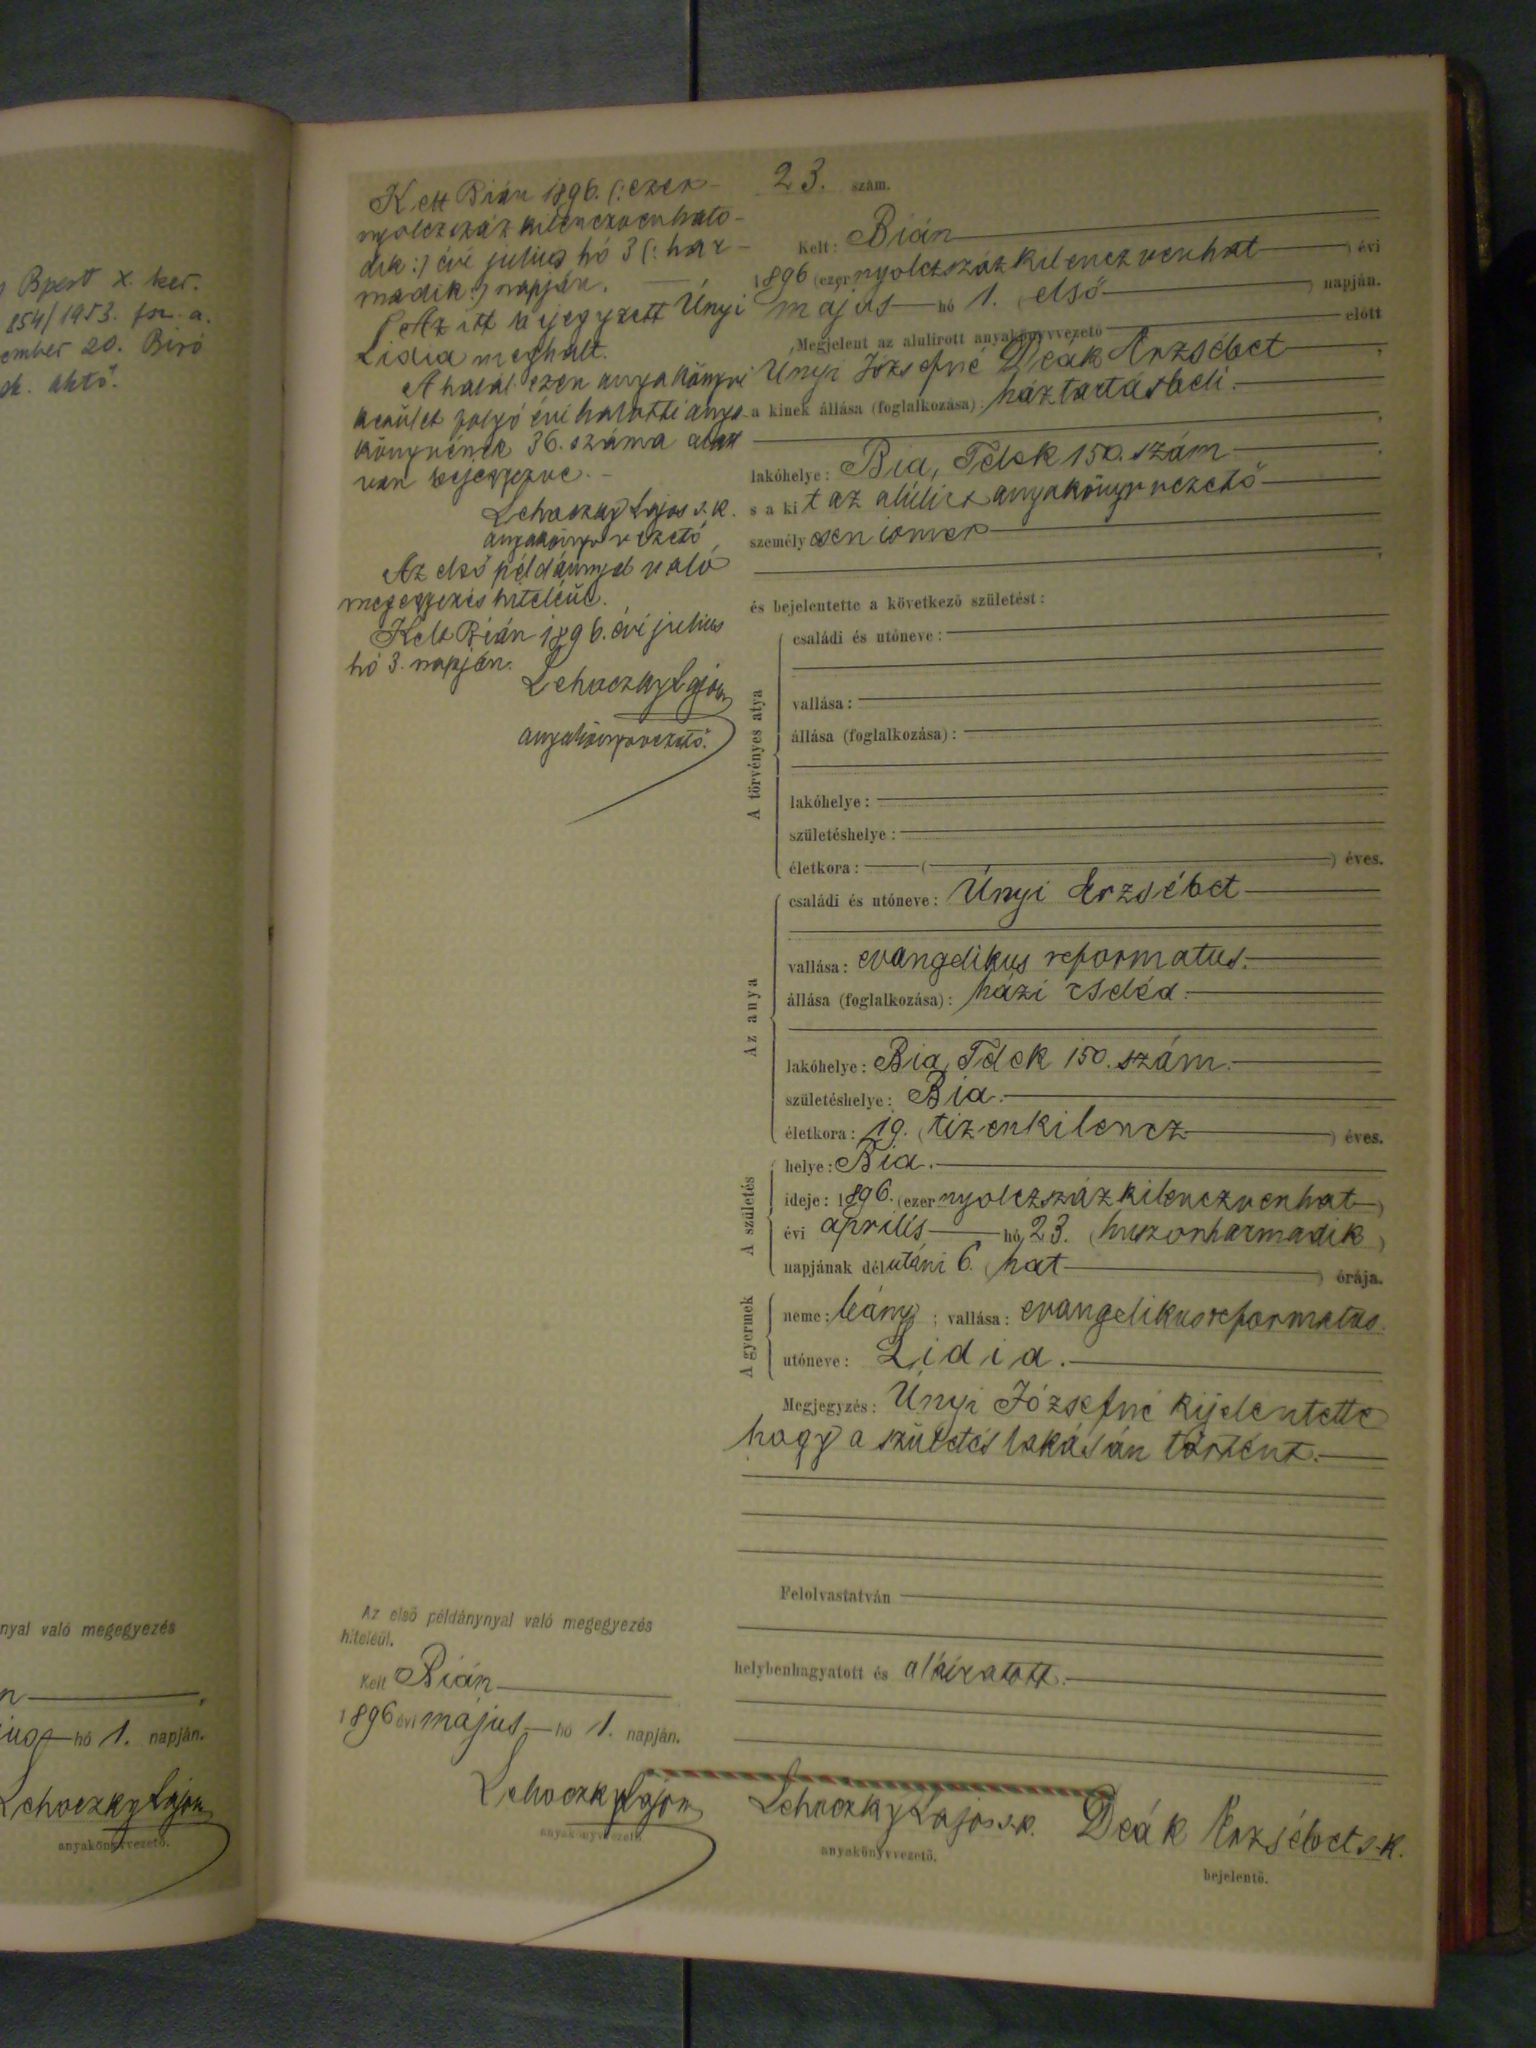 Bpest X. ker.
854/1953. fsz. a.
ember 20. Biró
sk. aktő.
nyal való megegyezés
hó 1. napján.
Lehoczky Lajos
anyakönyvvezető.
Kelt Bián 1896. (: ezer-
nyolczszáz kilenczvenhato-
dik :) évi julius hó 3 (: har-
madik :) napján.
Az itt bejegyzett Únyi
Lidia meghalt.
A halál ezen anyakönyvi
kerület folyó évi halotti anya-
könyvének 36. száma alatt
van bejegyezve. -
Lehoczky Lajos s. k.
anyakönyvvezető
Az első példánynyal való
megegyezés hiteléül.
Kelt Bián 1896. évi julius
hó 3. napján.
Lehoczky Lajos
anyakönyvvezető.
Az első példánynyal való megegyezés
hiteléül.
Kelt Bián
1896 évi május hó 1. napján.
Lehoczky Lajos
anyakönyvvezető.
23. szám.
Kelt: Bián
1896 (ezer nyolczszáz kilenczvenhat ) évi
május hó 1. ( első ) napján.
Megjelent az alulirott anyakönyvvezető előtt
Únyi Józsefné Deák Erzsébet ,
a kinek állása (foglalkozása): háztartásbeli.
lakóhelye: Bia, Telek 150. szám
s a kit az alulirt anyakönyvvezető
személyesen ismer
és bejelentette a következő születést:
A törvényes atya
családi és utóneve:
vallása:
állása (foglalkozása):
lakóhelye:
születéshelye:
életkora: ( ) éves.
Az anya
családi és utóneve: Únyi Erzsébet
vallása: evangelikus reformatus.
állása (foglalkozása): házi cseléd.
lakóhelye: Bia, Telek 150. szám.
születéshelye: Bia.
életkora: 19. ( tizenkilencz ) éves.
A születés
helye: Bia.
ideje: 1896. (ezer nyolczszáz kilenczvenhat )
évi április hó 23. ( huszonharmadik )
napjának délutáni 6. ( hat ) órája.
A gyermek
neme: leány ; vallása: evangelikus reformatus.
utóneve: Lidia.
Megjegyzés: Únyi Józsefné kijelentette
hogy a születés lakásán történt.
Felolvastatván
helybenhagyatott és aláiratott.
Lehoczky Lajos s. k.
anyakönyvvezető.
Deák Erzsébet s. k.
bejelentő.